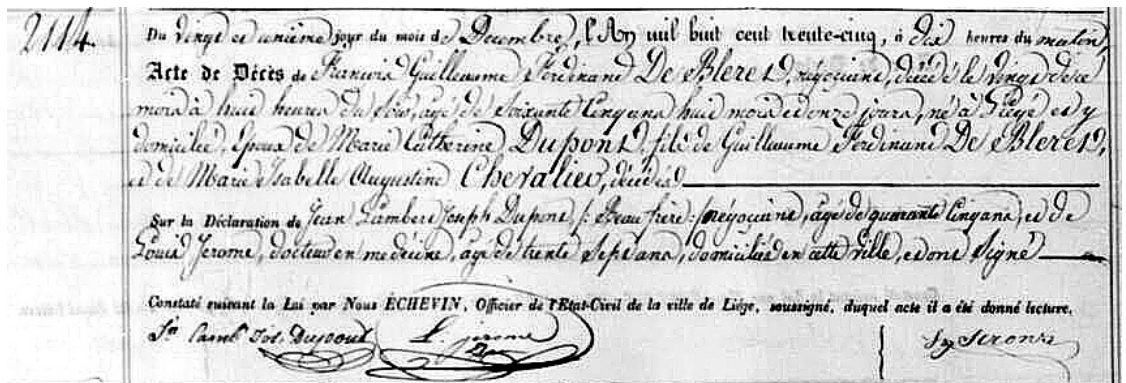 2114. Du vingt et unième jour du mois de Décembre, l'An mil huit cent trente-cinq, à dix heures du matin,
Acte de Décès de François Guillaume Ferdinand De Bleret, négociant, décédé le vingt de ce
mois à huit heures du soir, agé de soixante cinq ans huit mois et onze jours, né à Liége et y
domicilié, époux de Marie Catherine Dupont, fils de Guillaume Ferdinand De Bleret,
et de Marie Isabelle Augustine Chevalier, décédés
Sur la Déclaration de Jean Lambert Joseph Dupont /: Beau frère :/ négociant, agé de quarante cinq ans, et de
Louis Jerome, docteur en médecine, agé de trente sept ans, domiciliés en cette ville, et ont signé
Constaté suivant la Loi par Nous ÉCHEVIN, Officier de l'Etat-Civil de la ville de Liége, soussigné, duquel acte il a été donné lecture.
Jn Lamb Jos. Dupont L. Jerome